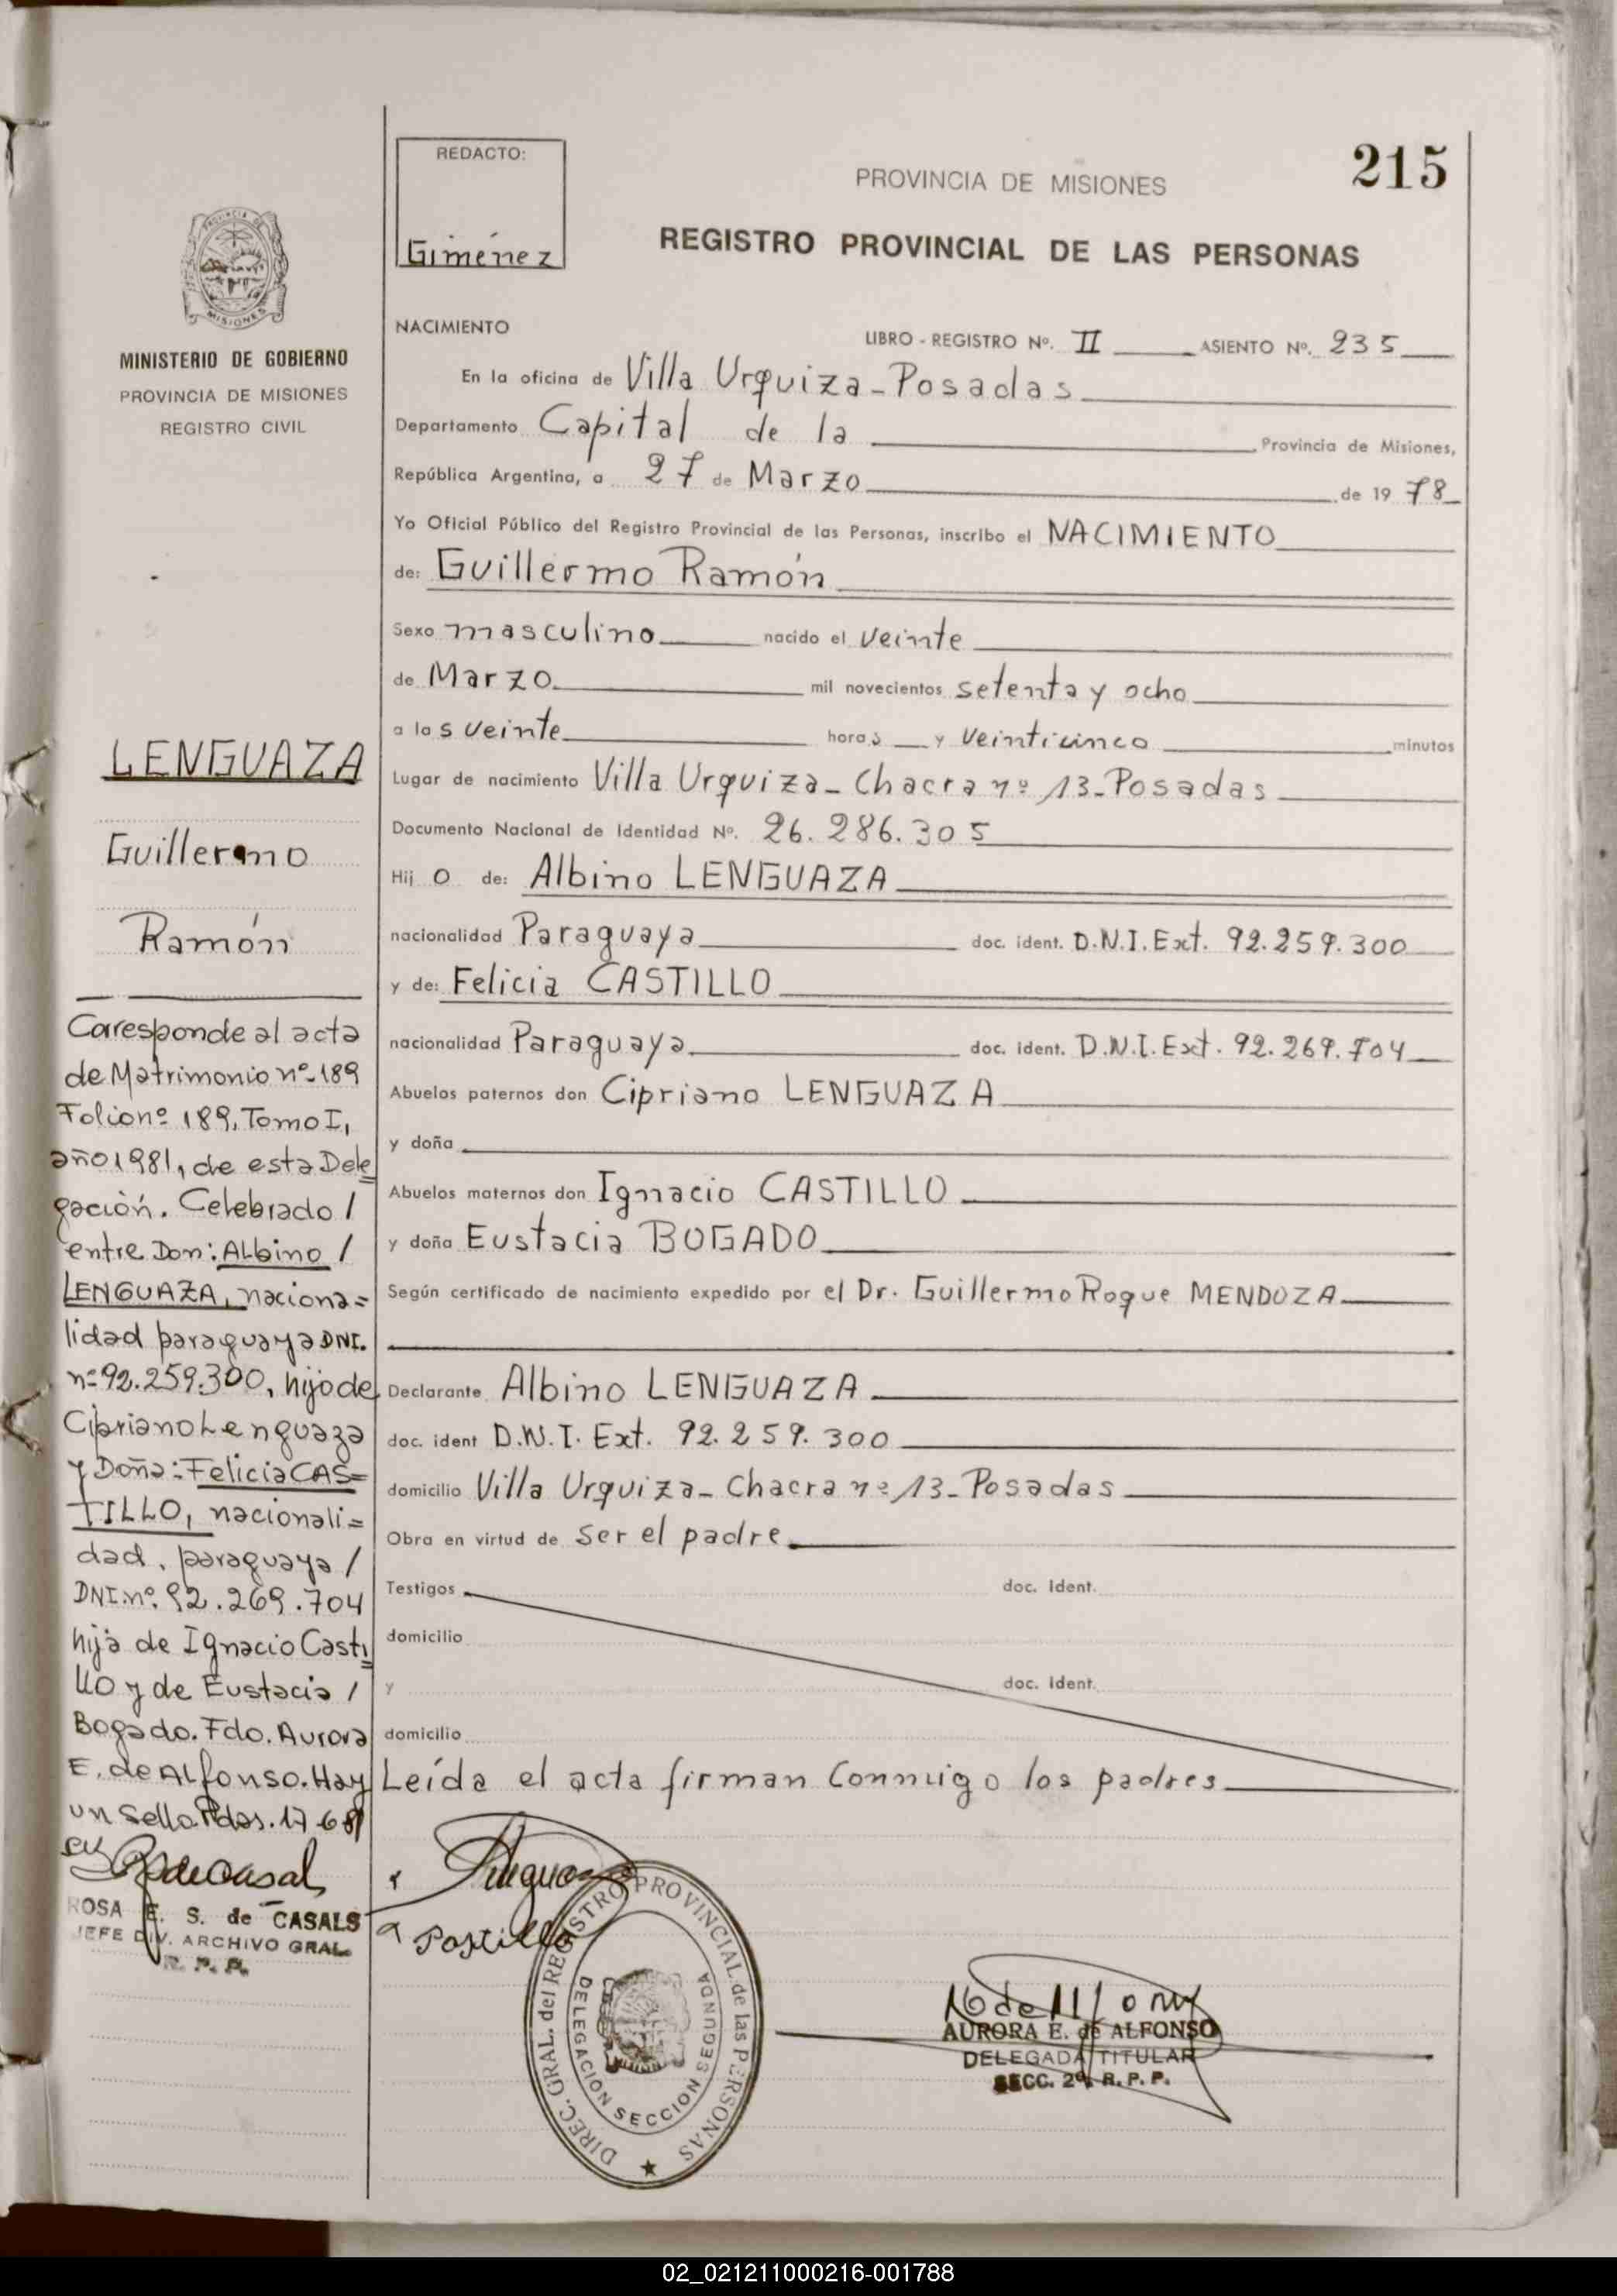 REDACTO:
Giménez
PROVINCIA DE MISIONES
215
REGISTRO PROVINCIAL DE LAS PERSONAS
PROVINCIA DE
MISIONES
MINISTERIO DE GOBIERNO
PROVINCIA DE MISIONES
REGISTRO CIVIL
LENGUAZA
Guillermo
Ramón
Corresponde al acta
de Matrimonio nº 189
Folio nº 189, Tomo I,
año 1981, de esta Dele
gación. Celebrado /
entre Don: Albino /
LENGUAZA, naciona=
lidad paraguaya DNI.
nº 92.259.300, hijo de
Cipriano Lenguaza
y Doña: Felicia CAS=
TILLO, nacionali=
dad, paraguaya /
DNI. nº. 92.269.704
hija de Ignacio Casti
llo y de Eustacia /
Bogado. Fdo. Aurora
E. de Alfonso. Hay
un sello Pdas. 17-6-81
ROSA E. S. de CASALS
JEFE DIV. ARCHIVO GRAL.
R. P. P.
NACIMIENTO
LIBRO - REGISTRO Nº. II ASIENTO Nº. 235
En la oficina de Villa Urquiza - Posadas
Departamento Capital de la Provincia de Misiones,
República Argentina, a 27 de Marzo de 1978
Yo Oficial Público del Registro Provincial de las Personas, inscribo el NACIMIENTO
de: Guillermo Ramón
Sexo masculino nacido el veinte
de Marzo mil novecientos setenta y ocho
a las veinte horas y veinticinco minutos
Lugar de nacimiento Villa Urquiza - Chacra nº 13 - Posadas
Documento Nacional de Identidad Nº. 26.286.305
Hijo de: Albino LENGUAZA
nacionalidad Paraguaya doc. ident. D.N.I. Ext. 92.259.300
y de: Felicia CASTILLO
nacionalidad Paraguaya doc. ident. D.N.I. Ext. 92.269.704
Abuelos paternos don Cipriano LENGUAZA
y doña
Abuelos maternos don Ignacio CASTILLO
y doña Eustacia BOGADO
Según certificado de nacimiento expedido por el Dr. Guillermo Roque MENDOZA
Declarante Albino LENGUAZA
doc. ident D.N.I. Ext. 92.259.300
domicilio Villa Urquiza - Chacra nº 13 - Posadas
Obra en virtud de ser el padre
Testigos doc. ident.
domicilio
y doc. ident.
domicilio
Leída el acta firman conmigo los padres
DIREC. GRAL. del REGISTRO PROVINCIAL de las PERSONAS
DELEGACION SECCION SEGUNDA
AURORA E. de ALFONSO
DELEGADA TITULAR
SECC. 2ª. R. P. P.
02_021211000216-001788